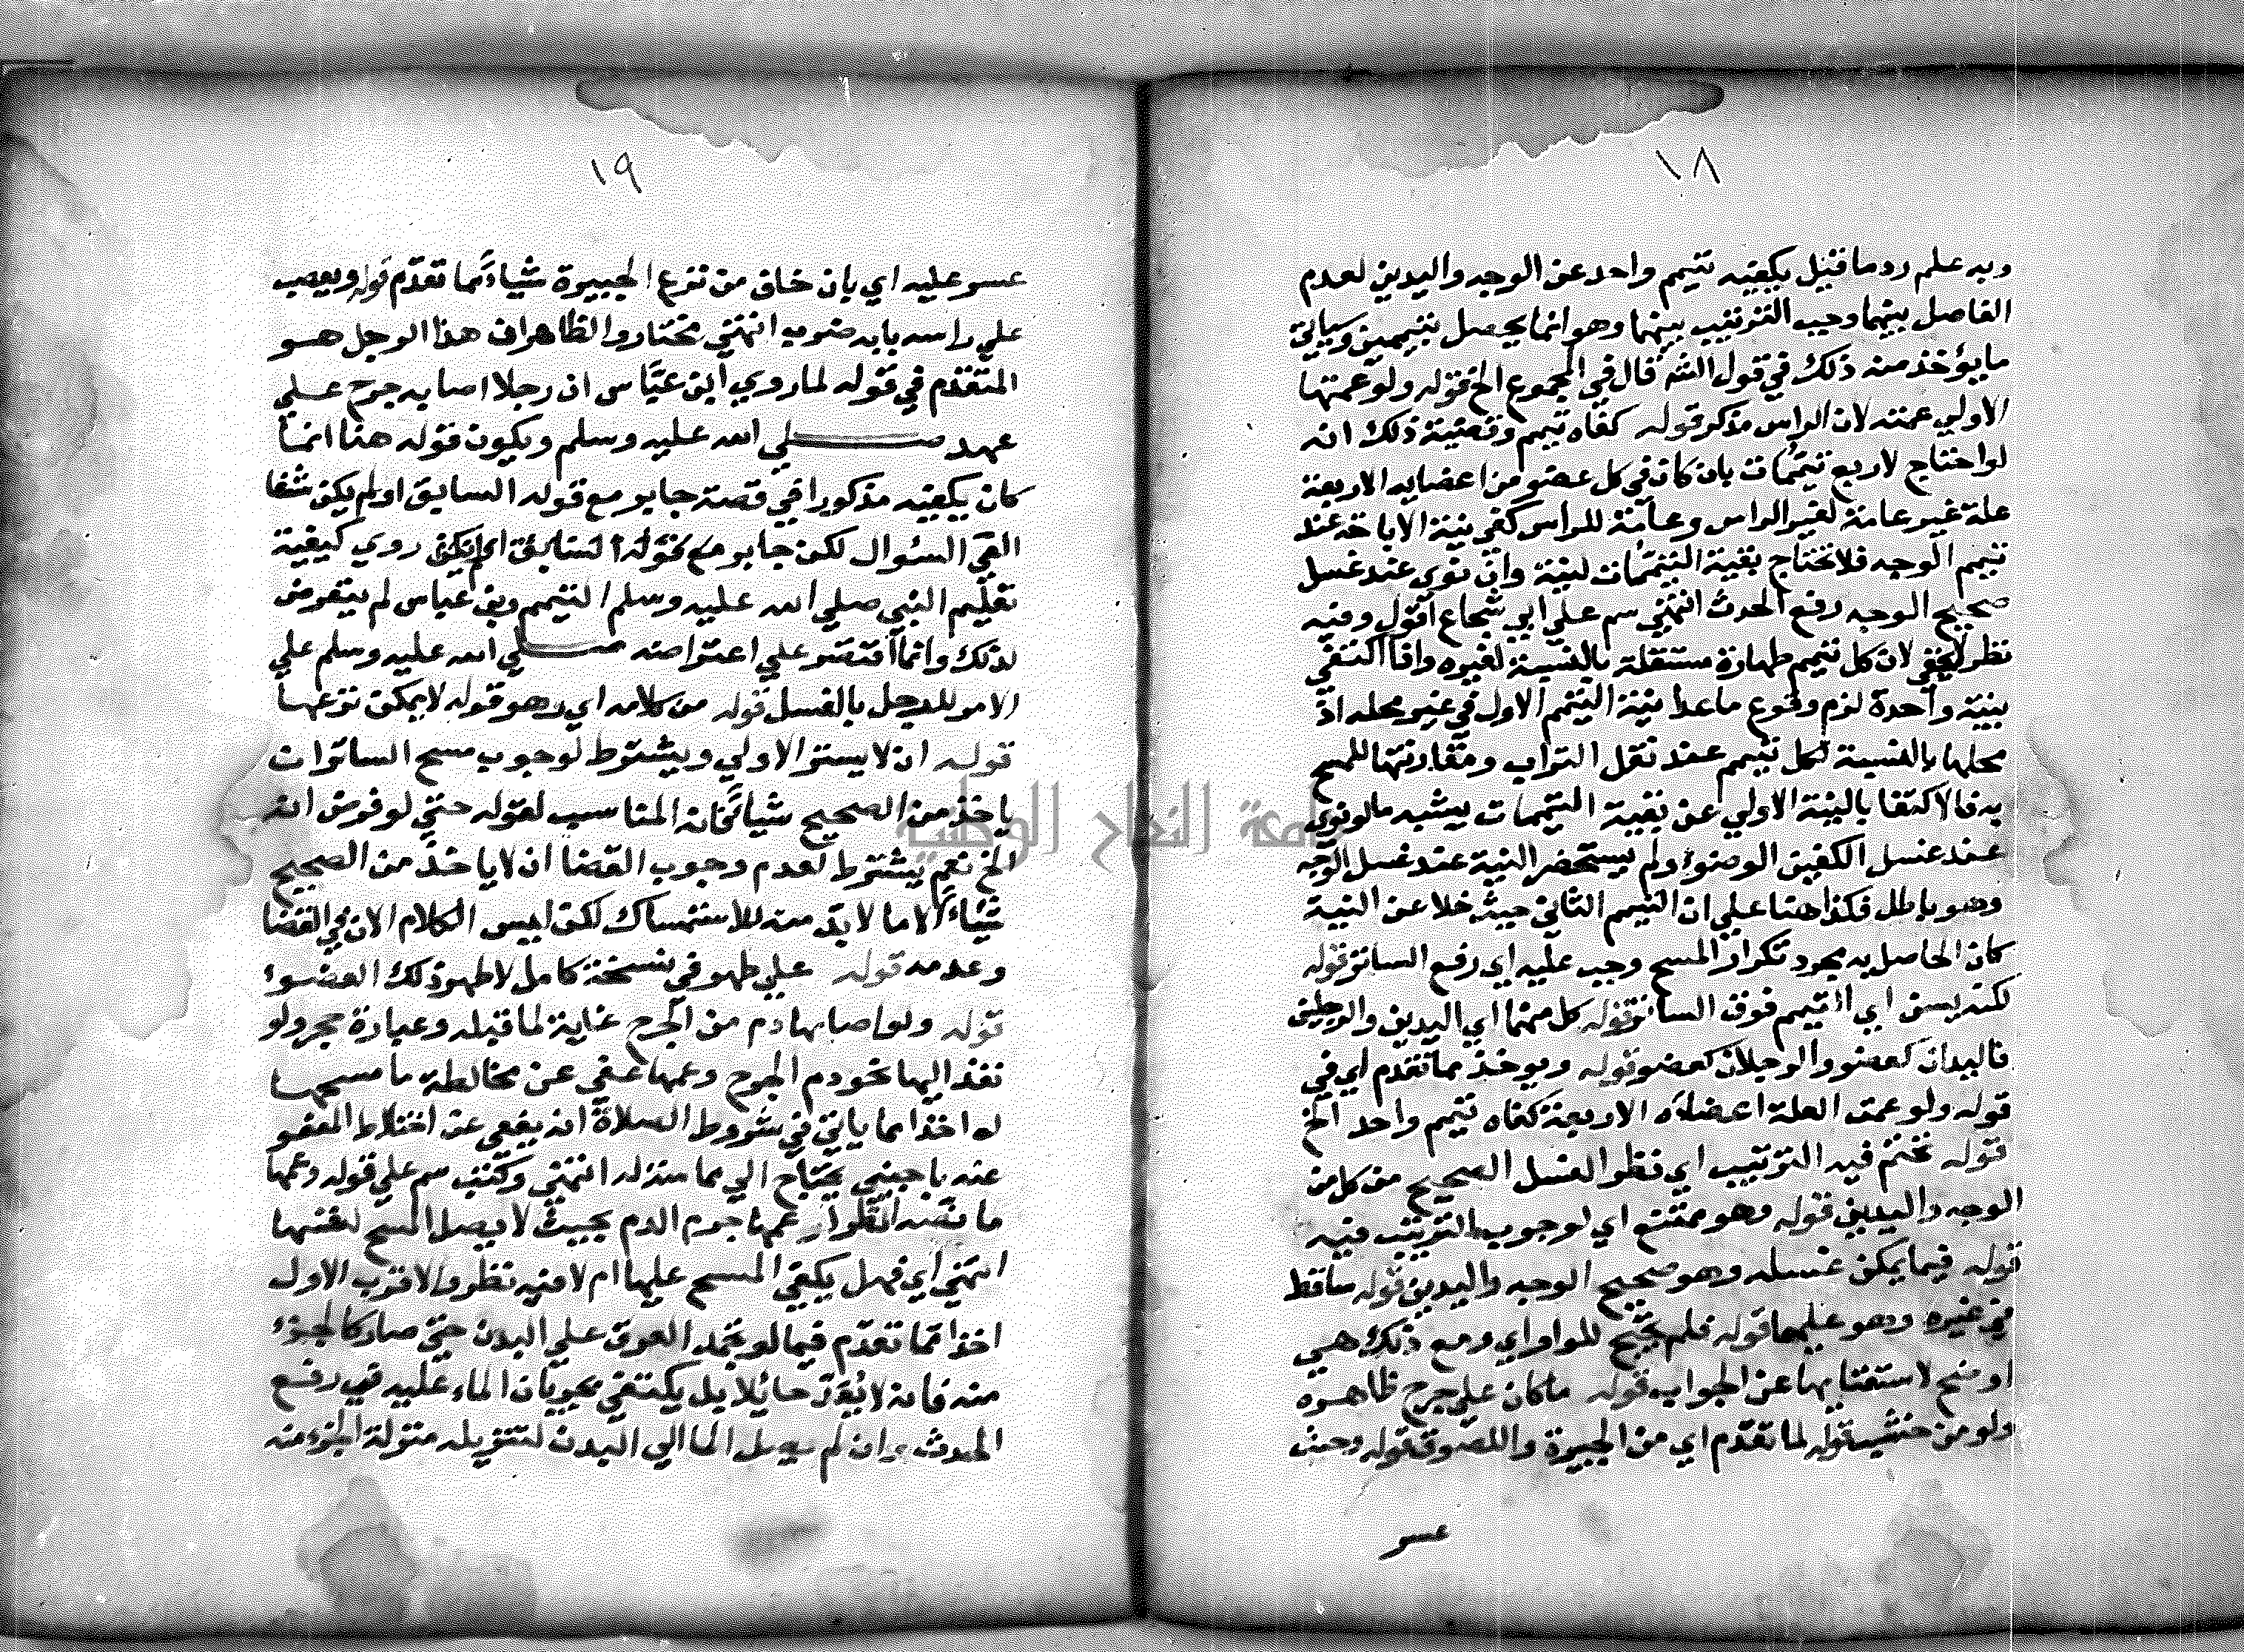 ١٨
وبه علم رد ما قيل يكفيه تيمم واحد عن الوجه واليدين لعدم
الفاصل بينهما وجب الترتيب بينهما وهو انما يحصل بتيممين وسياتي
ما يؤخذ منه ذلك في قول الشه قال في المجموع الخ قوله ولو عمتها
الاولي عمته لان الراس مذكر قوله كفاه تيمم وقضية ذلك انه
لو احتاج لاربع تيممات بان كان في كل عضو من اعضايه الاربعة
علة غير عامة لغير الراس وعامة للراس كفي نية الاباحة عند
تيمم الوجه فلا تحتاج بقية التيممات لنية وان نوي عند غسل
صحيح الوجه رفع الحدث انتهي سم علي ابي شجاع اقول وفيه
نظر لا يخفي لان كل تيمم طهارة مستقلة بالنسبة لغيره واذا اكتفي
بنية واحدة لزم وقوع ما عدا نية التيمم الاول في غير محله اذ
محلها بالنسبة لكل تيمم عند نقل التراب ومقارنتها للمسح
به فالاكتفا بالنية الاولي عن بقية التيممات يشبه ما لو نوي
عند غسل الكفين الوضوء ولم يستحضر النية عند غسل الوجه
وهو باطل فكذا هنا علي ان التيمم الثاني حيث خلا عن النية
كان الحاصل به مجرد تكرار المسح وجب عليه اي رفع الساتر قوله
لكنه يسن اي التيمم فوق الساتر قوله كل منهما اي اليدين والرجلين
فاليدان كعضو والرجلان كعضو قوله ويوخذ مما تقدم اي في
قوله ولو عمت العلة اعضاءه الاربعة كفاه تيمم واحد الخ
قوله تحتم فيه الترتيب اي نظرا لغسل الصحيح من كل من
الوجه واليدين قوله وهو ممتنع اي لوجوب الترتيب فيه
قوله فيما يمكن غسله وهو صحيح الوجه واليدين قوله ساقط
في غيره وهو عليهما قوله فلم يحتج للواو اي ومع ذلك هي
اوضح لاستغنايها عن الجواب قوله ما كان علي جرح ظاهره
ولو من خشب قوله لما تقدم اي من الجبيرة واللصوق قوله وحيث
عسر
١٩
عسر عليه اي بان خاف من نزع الجبيرة شياء مما تقدم قوله ويعصب
علي راسه بابه ضرب انتهي مختار والظاهر ان هذا الرجل هو
المتقدم في قوله لما روي ابن عباس ان رجلا اصابه جرح علي
عهده صلي الله عليه وسلم ويكون قوله هنا انما
كان يكفيه مذكورا في قصة جابر مع قوله السابق اولم يكن شفا
العي السؤال لكن جابر مع قوله السابق اولم يكن روي كيفية
تعليم النبي صلي الله عليه وسلم التيمم وبن عباس لم يتعرض
لذلك وانما اقتصر علي اعتراضه صلي الله عليه وسلم علي
الامر للرجل بالغسل قوله من كلامه اي وهو قوله لا يمكن نزعها
قوله ان لا يستر الاولي ويشترط لوجوب مسح الساتر ان
ياخذ من الصحيح شيا فانه المناسب لقوله حتي لو فرض انه
الخ نعم يشترط لعدم وجوب القضا ان لا ياخذ من الصحيح
شياء الا ما لا بد منه للاستمساك لكن ليس الكلام الان في القضا
وعدمه قوله علي طهر في نسخة كامل لا طهر ذلك العضو
قوله ولو اصابها دم من الجرح غاية لما قبله وعبارة حجر ولو
نفذ اليها نحو دم الجرح وعمها عفي عن مخالطة ما مسحها
له اخذا مما ياتي في شروط الصلاة انه يعفي عن اختلاط المعفو
عنه باجنبي يحتاج الي مماسته له انتهي وكتب سم علي قوله وعمها
ما نصه انظر لو عمها جرم الدم بحيث لا يصل المسح لنفسها
انتهي اي فهل يكفي المسح عليها ام لا فيه نظر والاقرب الاول
اخذا مما تقدم فيما لو تجمد العرق علي البدن حتي صار كالجزء
منه فانه لا يعد حائلا بل يكتفي بجريان الماء عليه في رفع
الحدث وان لم يصل الما الي البدن لتنزيله منزلة الجزء منه
جامعة النجاح الوطنية